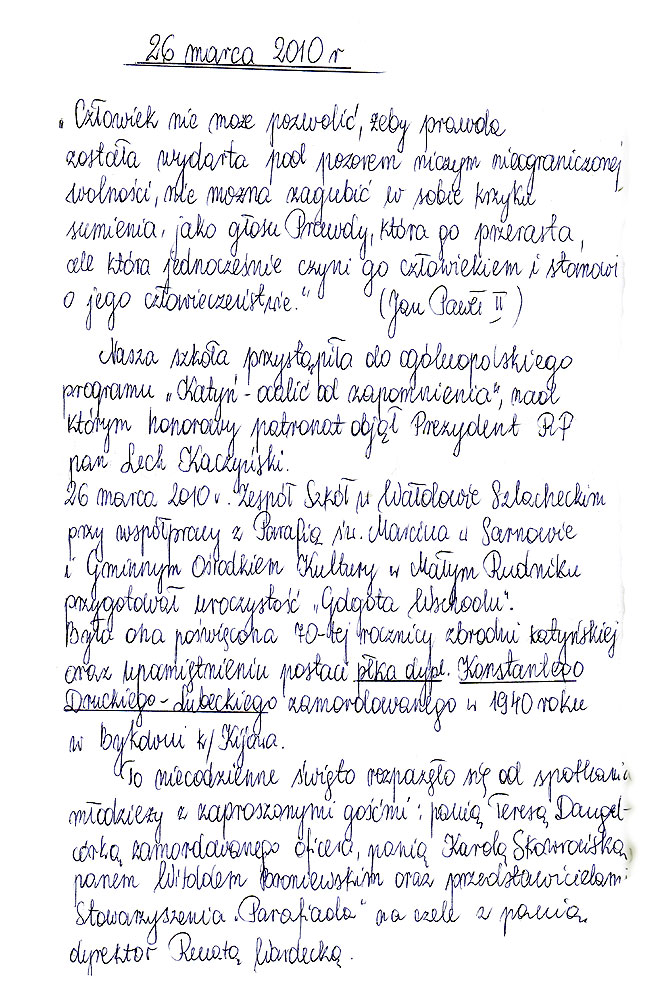 26 marca 2010 r
"Człowiek nie może pozwolić, żeby prawda
została wydarta pod pozorem niczym nieograniczonej
wolności, nie można zagubić w sobie krzyku
sumienia, jako głosu Prawdy, która go przerasta,
ale która jednocześnie czyni go człowiekiem i stanowi
o jego człowieczeństwie." (Jan Paweł II)
Nasza szkoła przystąpiła do ogólnopolskiego
programu „Katyń - ocalić od zapomnienia", nad
którym honorowy patronat objął Prezydent RP
pan Lech Kaczyński.
26 marca 2010 r. Zespół Szkół w Wałdowie Szlacheckim
przy współpracy z Parafią św. Marcina w Sarnowie
i Gminnym Ośrodkiem Kultury w Małym Rudniku
przygotował uroczystość „Golgota Wschodu".
Była ona poświęcona 70-tej rocznicy zbrodni katyńskiej
oraz upamiętnieniu postaci płka dypl. Konstantego
Druckiego-Lubeckiego zamordowanego w 1940 roku
w Bykowni k/Kijowa.
To niecodzienne święto rozpoczęło się od spotkania
młodzieży z zaproszonymi gośćmi: panią Teresą Daugel-
córką zamordowanego oficera, panią Karolą Skowrońską,
panem Witoldem Broniewskim oraz przedstawicielami
Stowarzyszenia „Parafiada" na czele z panią
dyrektor Renatą Wardecką.